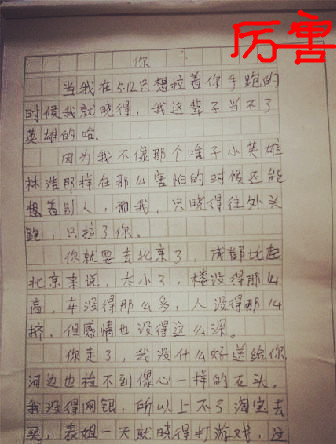 厉害
你
当我在512只想拉着你手跑的
时候我就晓得，我这辈子当不了
英雄的哈.
因为我不像那个啥子小英雄
林浩那样在那么害怕的时候还能
想着别人，而我，只晓得往外头
跑，只拉了你。
你就要去北京了，成都比起
北京来说，太小了，楼没得那么
高，车没得那么多，人没得那么
挤，但感情也没得这么深。
你走了，我没什么好送给你
河边也捡不到像心一样的石头。
我没得网银，所以上不了淘宝去
买，表姐一天就晓得打游戏，这